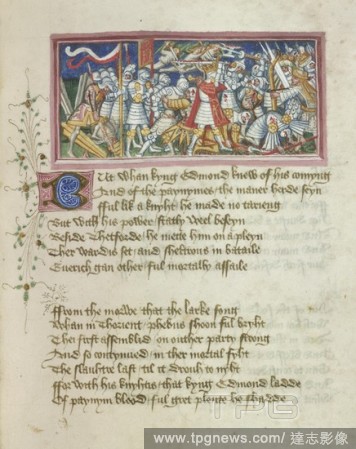 But whan kyng Edmond knew of his comyng
And of the paynymes the maner herde seyn
fful lik a knyht he made no tarieng
But with his power statly weel beseyn
Beside Thetforde he mette hym on a pleyn
Ther ward is set and sheltrons in bataile
Euerich gan other ful mortally assaile
ffrom the morwe that the larke song
Whan in Thorient phebus shoon ful bryht
The first assembled on outher party strong
And so contynued in ther mortal fyht
The slauhtre last til it drouh to nyht
ffor with his knyhtis that kyng Edmond ladde
Of paynym blood ful gret plente he shadde
TPG
www.tpgnews.com/ 達志影像